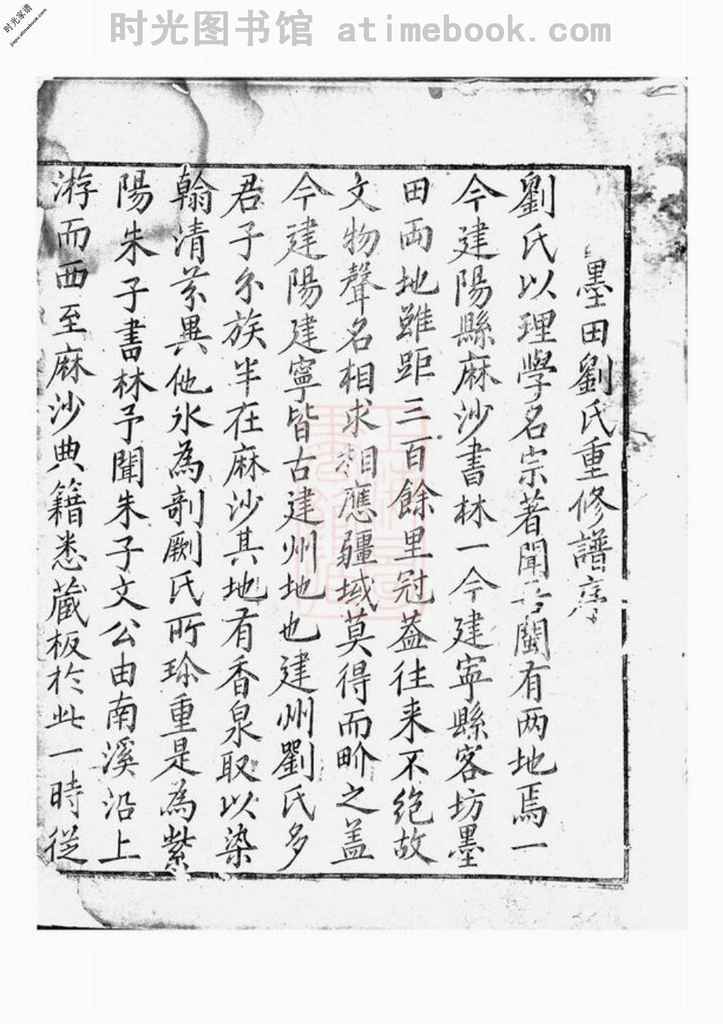 时光图书馆 atimebook.com
时光家谱
墨田劉氏重修譜序
劉氏以理學名宗著聞吾閩有两地焉一
今建陽縣麻沙書林一今建寧縣客坊墨
田両地雖距三百餘里冠葢往来不绝故
文物聲名相求相應疆域莫得而畍之盖
今建陽建寧皆古建州地也建州劉氏多
君子尔族半在麻沙其地有香泉取以染
翰清芬異他氷為剞劂氏所珍重是為紫
陽朱子書林予聞朱子文公由南溪沿上
游而西至麻沙典籍悉蔵板扵此一時從